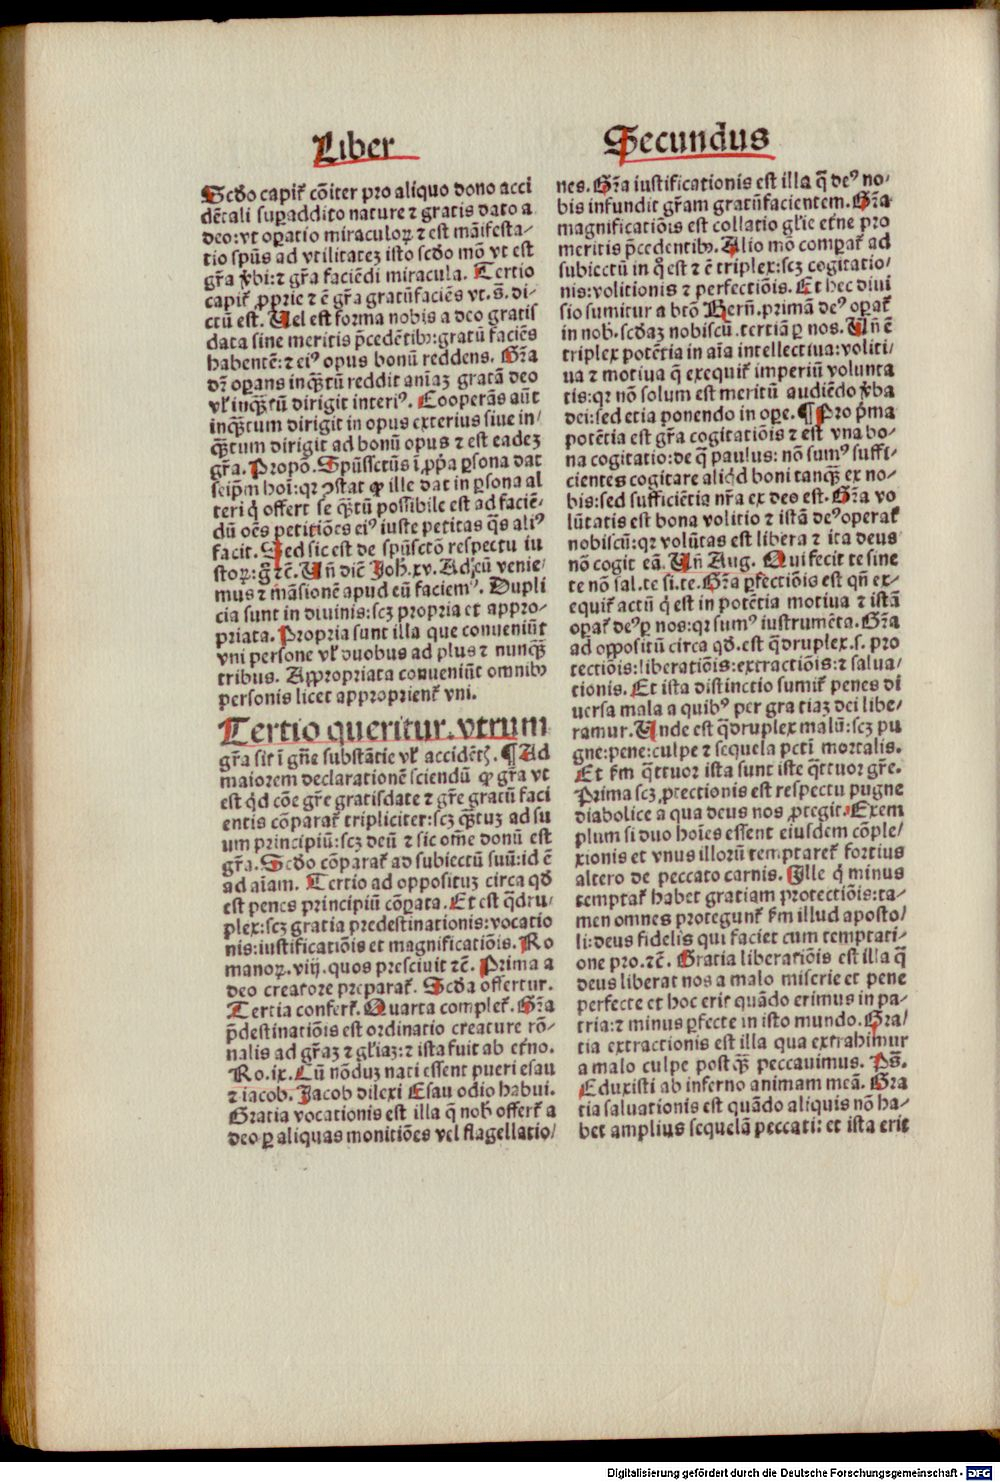 Liber Secundus
Scd̄o capit᷑ cōiter pro aliquo dono acci
dētali suꝑaddito nature ⁊ gratis dato a
deo: vt oꝑatio miraculoꝝ ⁊ est māifesta-
tio spūs ad vtilitateꝫ isto scd̄o mō vt est
gr̄a v̄bi: ⁊ gr̄a faciēdi miracula. Tertio
capit᷑ ꝓprie ⁊ ē gr̄a gratūfaciēs vt. s̄. di-
ctū est. Uel est forma nobis a deo gratis
data sine meritis p̄cedētibꝫ: gratū faciēs
habentē: ⁊ eiꝰ opus bonū reddens. Gr̄a
dr̄ oꝑans inq̄ꝫtū reddit anīaꝫ gratā deo
vl̓ inq̄ꝫtū dirigit interiꝰ. Cooperās aūt
inq̄ꝫtum dirigit in opus exterius siue in/
q̄ꝫtum dirigit ad bonū opus ⁊ est eadeꝫ
gr̄a. Propō. Spūssctūs ī ꝓp̄a ꝑsona dat
seip̄m hoī: qꝛ ꝯstat ꝙ ille dat in ꝑsona al
teri q̇ offert se q̄ꝫtū possibile est ad faciē-
dū oēs petitiōes eiꝰ iuste petitas q̄s aliꝰ
facit. Sed sic est de spūsctō respectu iu
stoꝝ: g̊ ⁊c̄. Un̄ diē Joh̄. xv. Ad eū venie/
mus ⁊ māsionē apud eū faciemꝰ. Dupli
cia sunt in diuinis: scꝫ propria et appro-
priata. Propria sunt illa que conueniūt
vni persone vl̓ duobus ad plus ⁊ nunq̄ꝫ
tribus. Appropriata conueniūt omnibꝫ
personis licet approprient᷑ vni.
Tertio queritur. vtrum
gr̄a sit ī gn̄e substātie vl̓ accidēt̄. ¶ Ad
maiorem declarationē sciendū ꝙ gr̄a vt
est q̇d cōe gr̄e gratisdate ⁊ gr̄e gratū faci
entis cōparat᷑ tripliciter: scꝫ q̄ꝫtuꝫ ad su
um principiū: scꝫ deū ⁊ sic om̄e donū est
gr̄a. Scd̄o cōparat᷑ ad subiectū suū: id ē
ad aīam. Tertio ad oppositū circa qd̄
est penes principiū cōꝑata. Et est q̄dru/
plex: scꝫ gratia predestinationis: vocatio
nis: iustificatiōis et magnificatiōis. Ro
manoꝝ. viij. quos presciuit ⁊c̄. Prima a
deo creatore preparat᷑. Scd̄a offertur.
Tertia confert᷑. Quarta complet᷑. Gr̄a
p̄destinatiōis est ordinatio creature rō-
nalis ad gr̄aꝫ ⁊ gl̓iaꝫ: ⁊ ista fuit ab et̓no.
Ro. ix. Cū nōduꝫ nati essent pueri esau
⁊ iacob. Jacob dilexi Esau odio habui.
Gratia vocationis est illa q̄ nob̄ offert᷑ a
deo ꝑ aliquas monitiōes vel flagellatio/
nes. Gr̄a iustificationis est illa q̄ deꝰ no/
bis infundit gr̄am gratūfacientem. Gr̄a
magnificatiōis est collatio gl̓ie et̓ne pro
meritis p̄cedentibꝫ. Alio mō comꝑat᷑ ad
subiectū in q̊ est ⁊ ē triplex: scꝫ cogitatio/
nis: volitionis ⁊ perfectiōis. Et hec diui
sio sumitur a btō Bern̄. primā deꝰ oꝑat᷑
in nob̄. scd̄aꝫ nobiscū. tertiā ꝑ nos. Un̄ ē
triplex potētia in aīa intellectiua: voliti/
ua ⁊ motiua q̄ exequit᷑ imperiū volunta
tis: qꝛ nō solum est meritū audiēdo v̄ba
dei: sed etia ponendo in oꝑe. ¶ Pro p̄ma
potētia est gr̄a cogitatiōis ⁊ est vna bo-
na cogitatio: de q̄ paulus: nō sumꝰ suffi-
cientes cogitare aliq̇d boni tanq̄ꝫ ex no-
bis: sed sufficiētia nr̄a ex deo est. Gr̄a vo
lūtatis est bona volitio ⁊ istā deꝰ operat᷑
nobiscū: qꝛ volūtas est libera ⁊ ita deus
nō cogit eā. Un̄ Aug. Qui fecit te sine
te nō sal. te si. te. Gr̄a ꝑfectiōis est qn̄ ex-
equit᷑ actū q̇ est in potētia motiua ⁊ istā
oꝑat᷑ deꝰ ꝑ nos: qꝛ sumꝰ iustrumēta. Gr̄a
ad oppositū circa qd̄. est q̄druplex. s. pro
tectiōis: liberatiōis: extractiōis: ⁊ salua/
tionis. Et ista distinctio sumit᷑ penes di
uersa mala a quibꝰ per gratiaꝫ dei libe/
ramur. Unde est q̄druplex malū: scꝫ pu
gne: pene: culpe ⁊ sequela pctī mortalis.
Et fm̄ q̄ttuor ista sunt iste q̄ttuor gr̄e.
Prima scꝫ ꝓtectionis est respectu pugne
diabolice a qua deus nos ꝓtegit. Exem
plum si duo hoīes essent eiusdem cōple/
xionis et vnus illorū temptaret᷑ fortius
altero de peccato carnis. Ille q̇ minus
temptat᷑ habet gratiam protectiōis: ta-
men omnes protegunt᷑ fm̄ illud aposto/
li: deus fidelis qui faciet cum temptati-
one pro. ⁊c̄. Gratia liberatiōis est illa q̄
deus liberat nos a malo miserie et pene
perfecte et hoc erit quādo erimus in pa-
tria: ⁊ minus ꝑfecte in isto mundo. Gra/
tia extractionis est illa qua extrahimur
a malo culpe post q̄ꝫ peccauimus. Ps̄.
Eduxisti ab inferno animam meā. Gra
tia saluationis est quādo aliquis nō ha-
bet amplius sequelā peccati: et ista erit
Digitalisierung gefördert durch die Deutsche Forschungsgemeinschaft - DFG